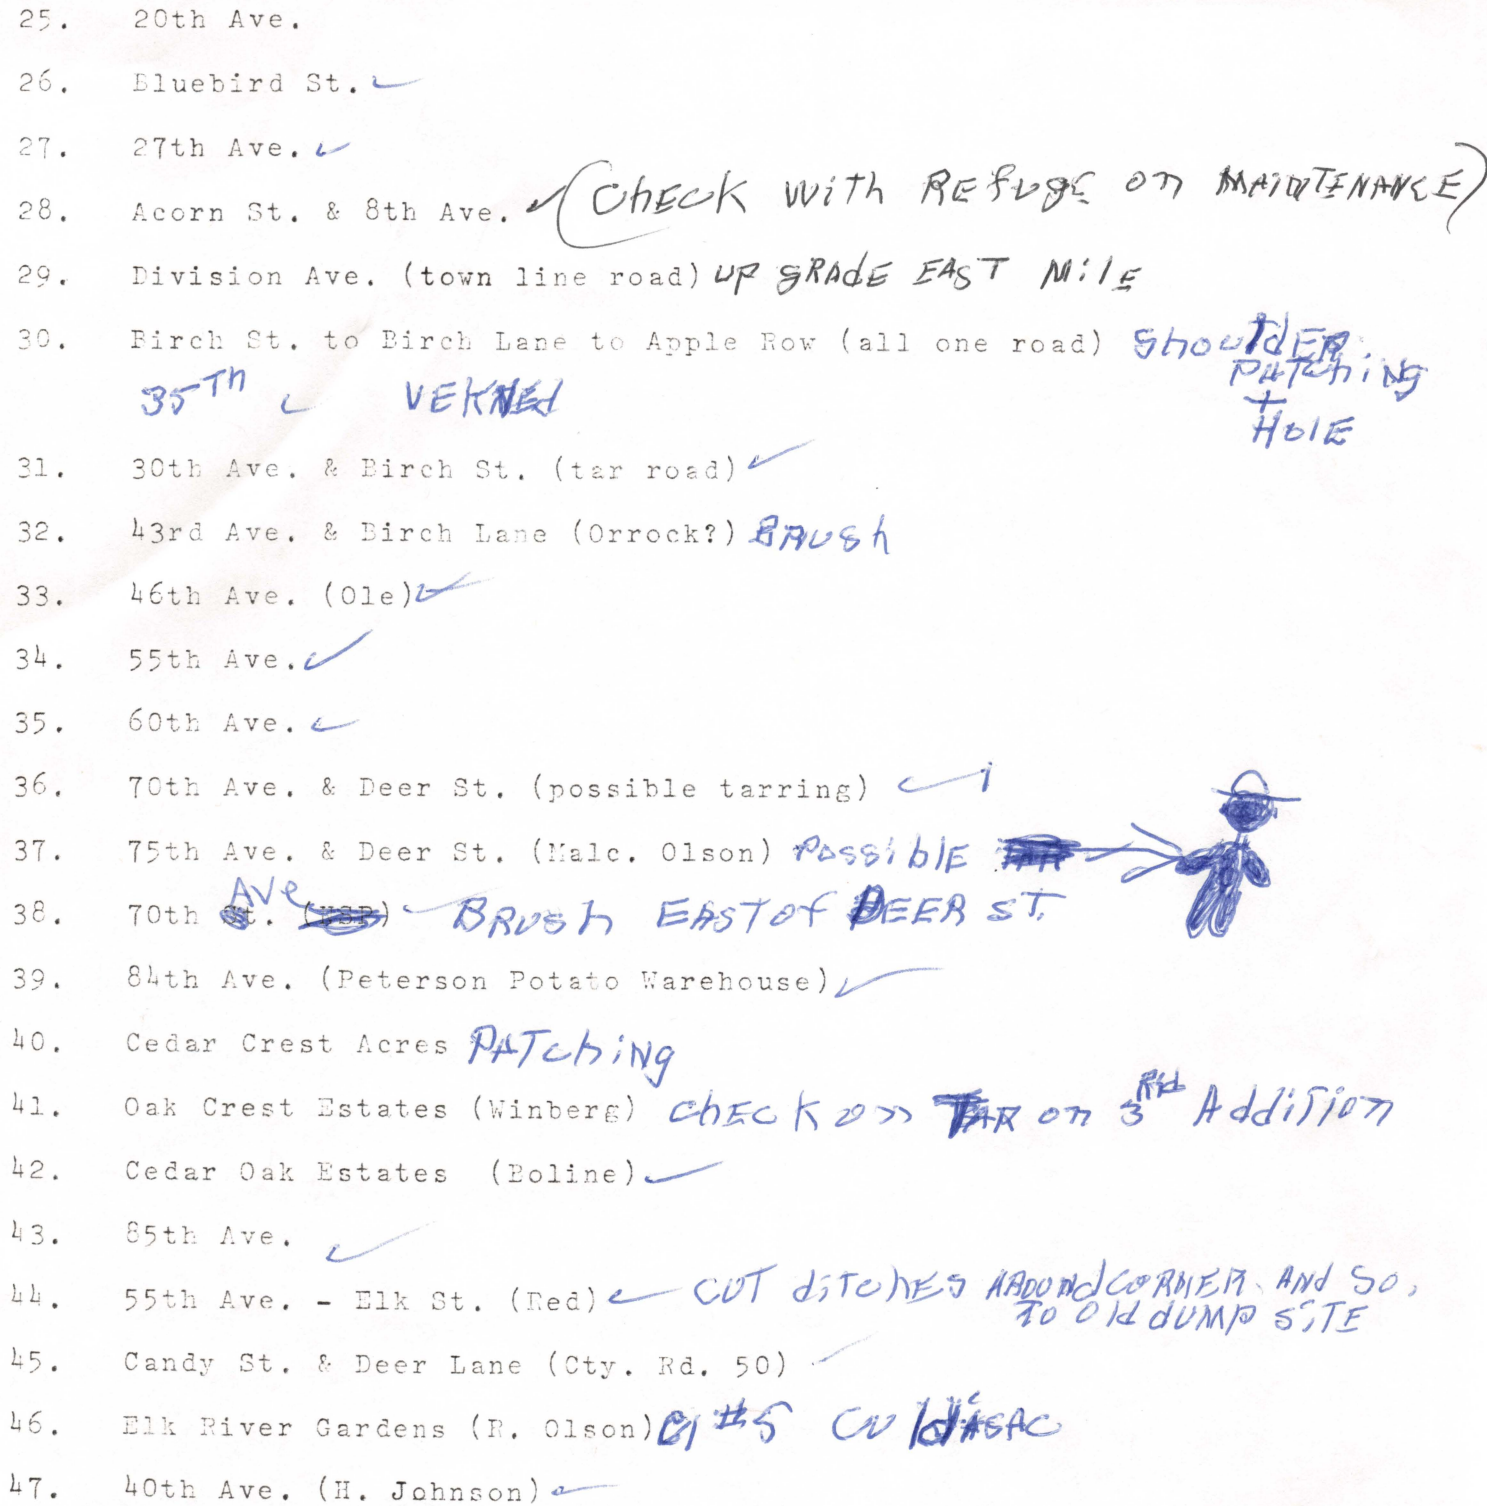 25. 20th Ave.
26. Bluebird St. ✓
27. 27th Ave. ✓
28. Acorn St. & 8th Ave. ✓ (ChECK WiTh REfugE on MAINTENANCE)
29. Division Ave. (town line road) UP GRAdE EAST MilE
30. Birch St. to Birch Lane to Apple Row (all one road) ShouldER
PATChiNG
+
HolE
35Th ✓
31. 30th Ave. & Birch St. (tar road) ✓
32. 43rd Ave. & Birch Lane (Orrock?) BRUSh
33. 46th Ave. (Ole) ✓
34. 55th Ave. ✓
35. 60th Ave. ✓
36. 70th Ave. & Deer St. (possible tarring) ✓
37. 75th Ave. & Deer St. (Malc. Olson) PossiblE
38. 70th AVe ✓ BRUSh EAST of DEER ST.
39. 84th Ave. (Peterson Potato Warehouse) ✓
40. Cedar Crest Acres PATChiNg
41. Oak Crest Estates (Winberg) ChECK on TAR on 3Rd AddiTion
42. Cedar Oak Estates (Boline) ✓
43. 85th Ave. ✓
44. 55th Ave. - Elk St. (Red) ✓ CUT diTChES AROUNd CORNER ANd So.
To Old dUMP SiTE
45. Candy St. & Deer Lane (Cty. Rd. 50) ✓
46. Elk River Gardens (R. Olson) #5
47. 40th Ave. (H. Johnson) ✓